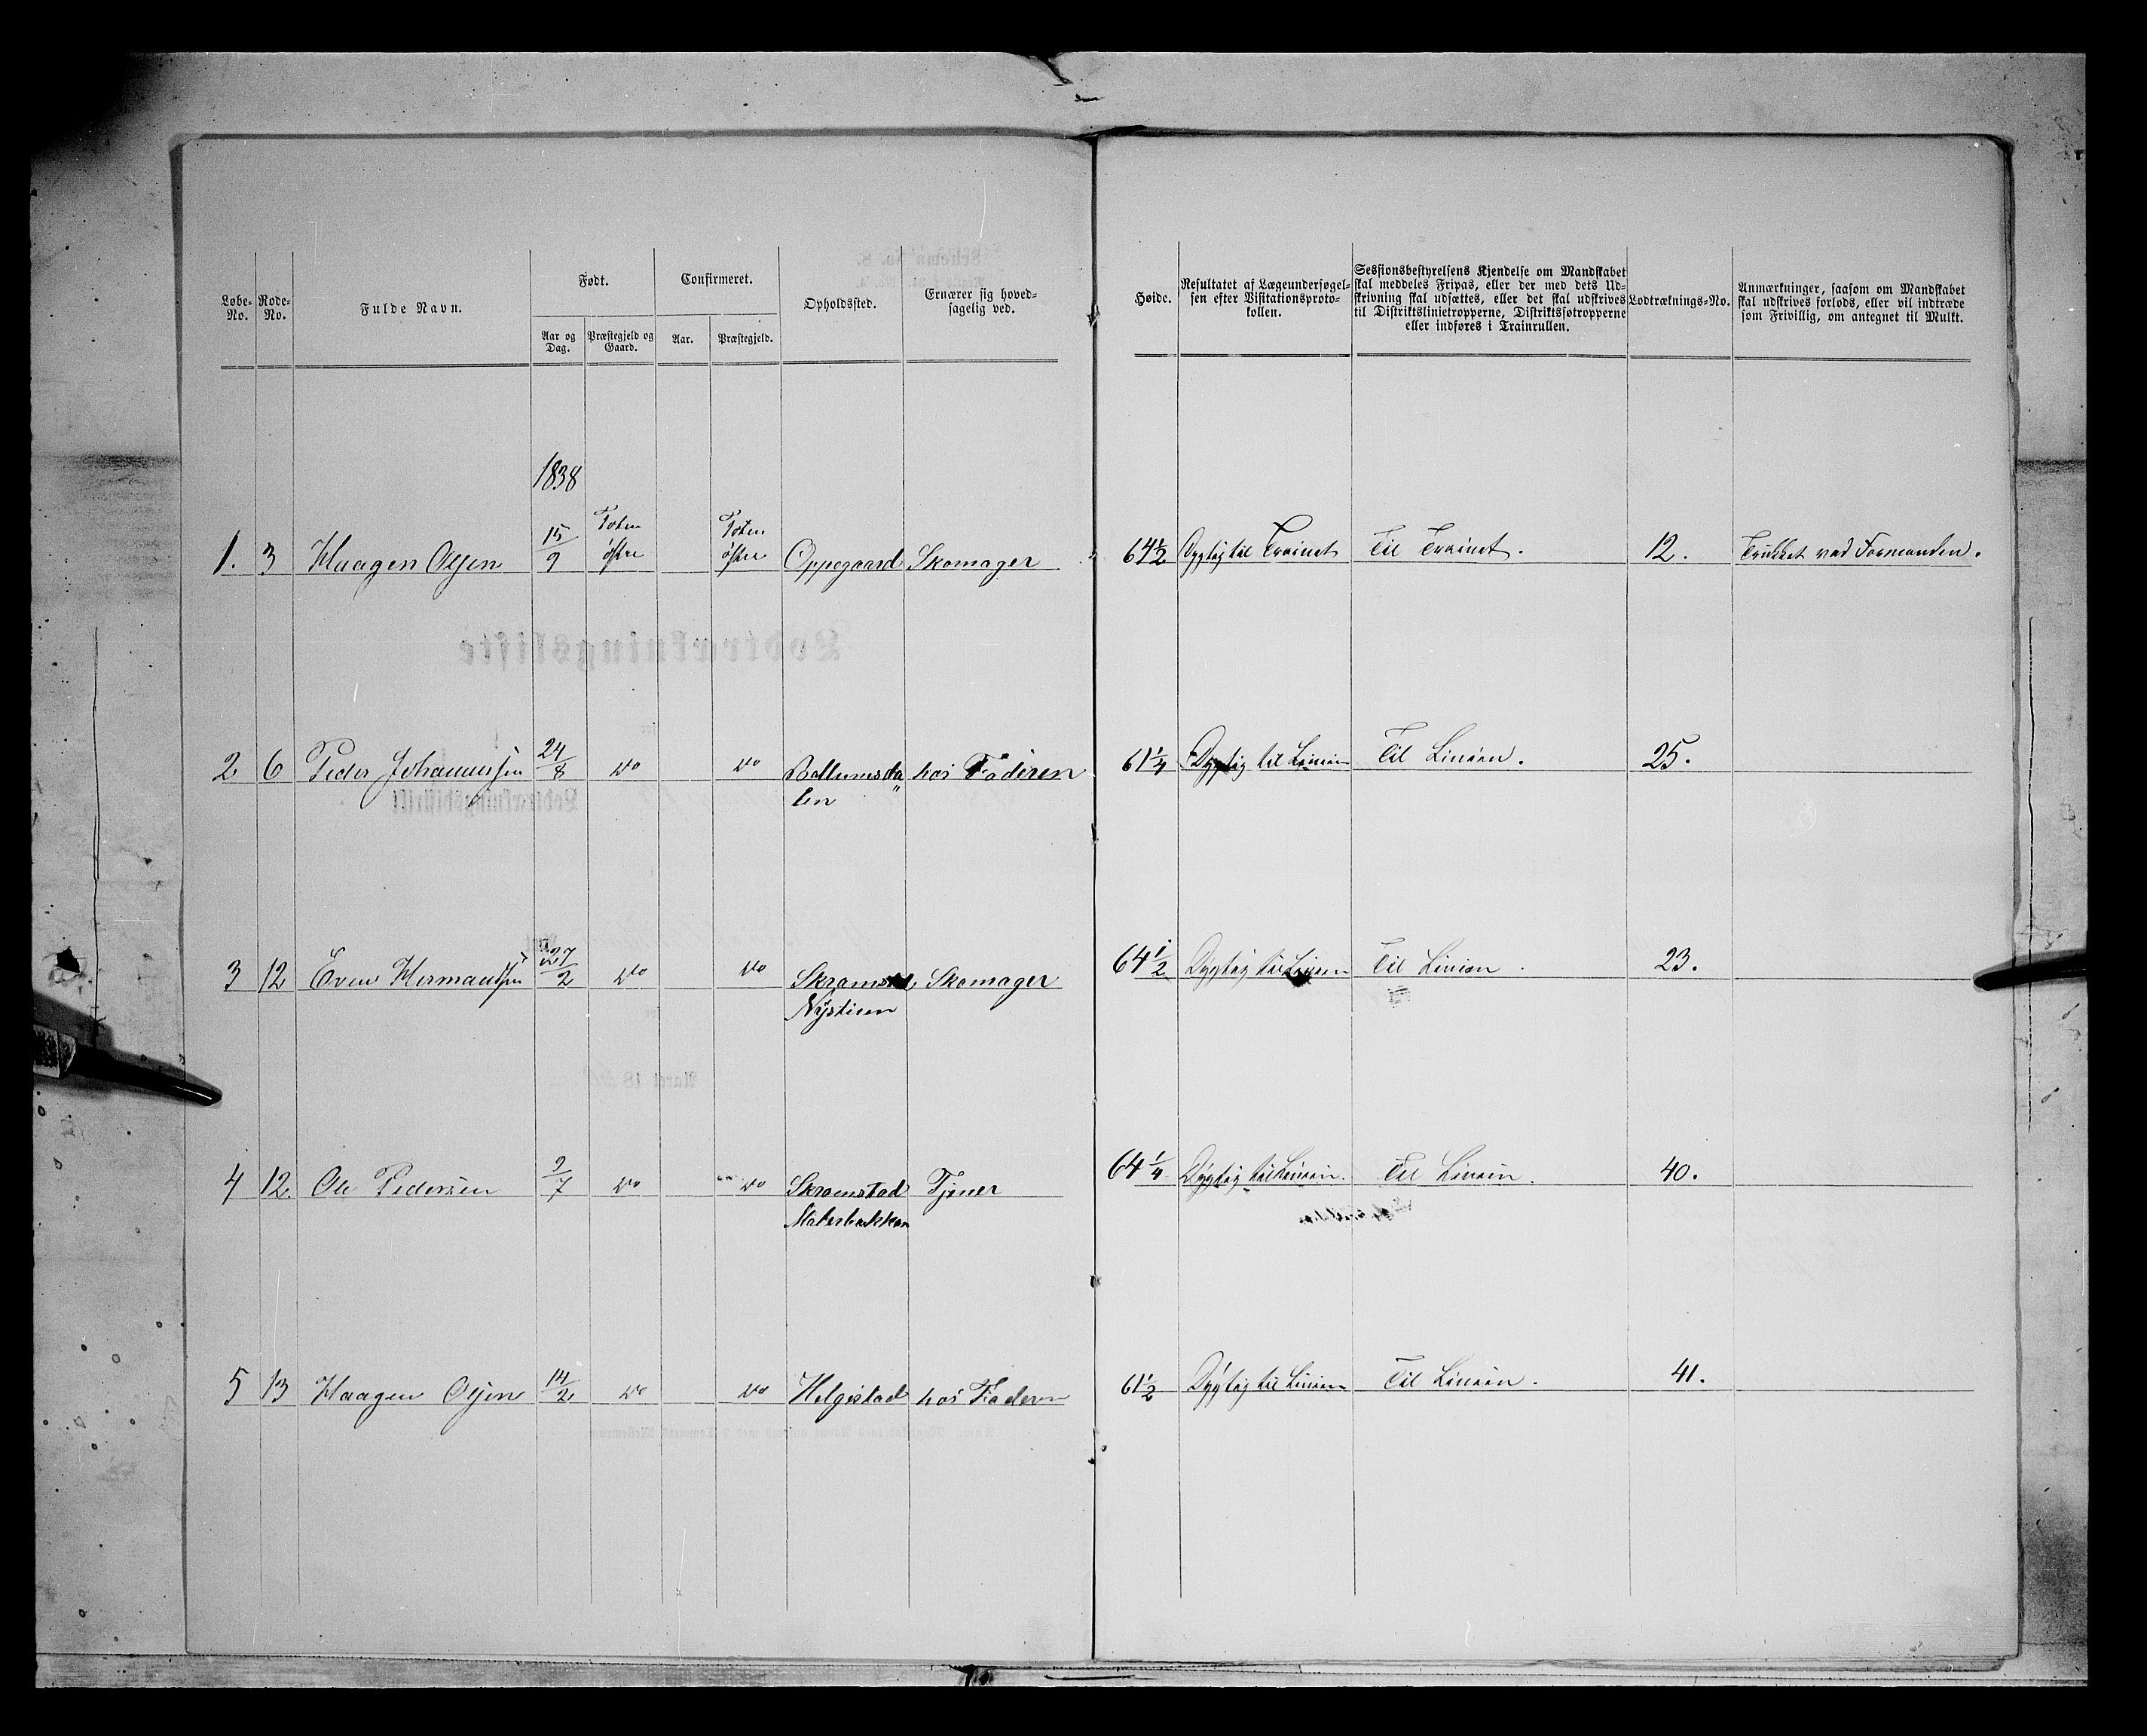 Løbe-No. Rode-No. Fulde Navn. Født. Confirmeret. Opholdssted. Ernærer sig hovedsagelig ved.
Aar og Dag. Præstegjeld og Gaard. Aar. Præstegjeld.
Høide. Resultatet af Lægeundersøgelsen efter Visitationsprotokollen. Sessionsbestyrelsens Kjendelse om Mandskabet skal meddeles Fripas, eller der med dets Udskrivning skal udsættes, eller det skal udskrives til Distriktslinietropperne, Distriktsøtropperne eller indføres i Trainrullen. Lodtræknings-No. Anmærkninger, saasom om Mandskabet skal udskrives forlods, eller vil indtræde som Frivillig, om antegnet til Mulkt.
1838
1. 3 Haagen Olsen 15/9 Toten østre Toten østre Oppegaard Skomager 64½ Dygtig til Trainet Til Trainet. 12. Trukket ved Formanden.
2 6 Peder Johannessen 24/8 do do hos Faderen 61¼ Dygtig til Linien Til Linien. 25.
3 12 Even Hermandsen 27/2 do do Skramstad Skomager 64½ Dygtig til Linien Til Linien. 23.
4 12. Ole Pedersen 9/7 do do Skramstad Tjener 64¼ Dygtig til Linien. Til Linien. 40.
5 13 Haagen Olsen 14/2 do do Helgestad hos Faderen 61½ Dygtig til Linien Til Linien. 41.